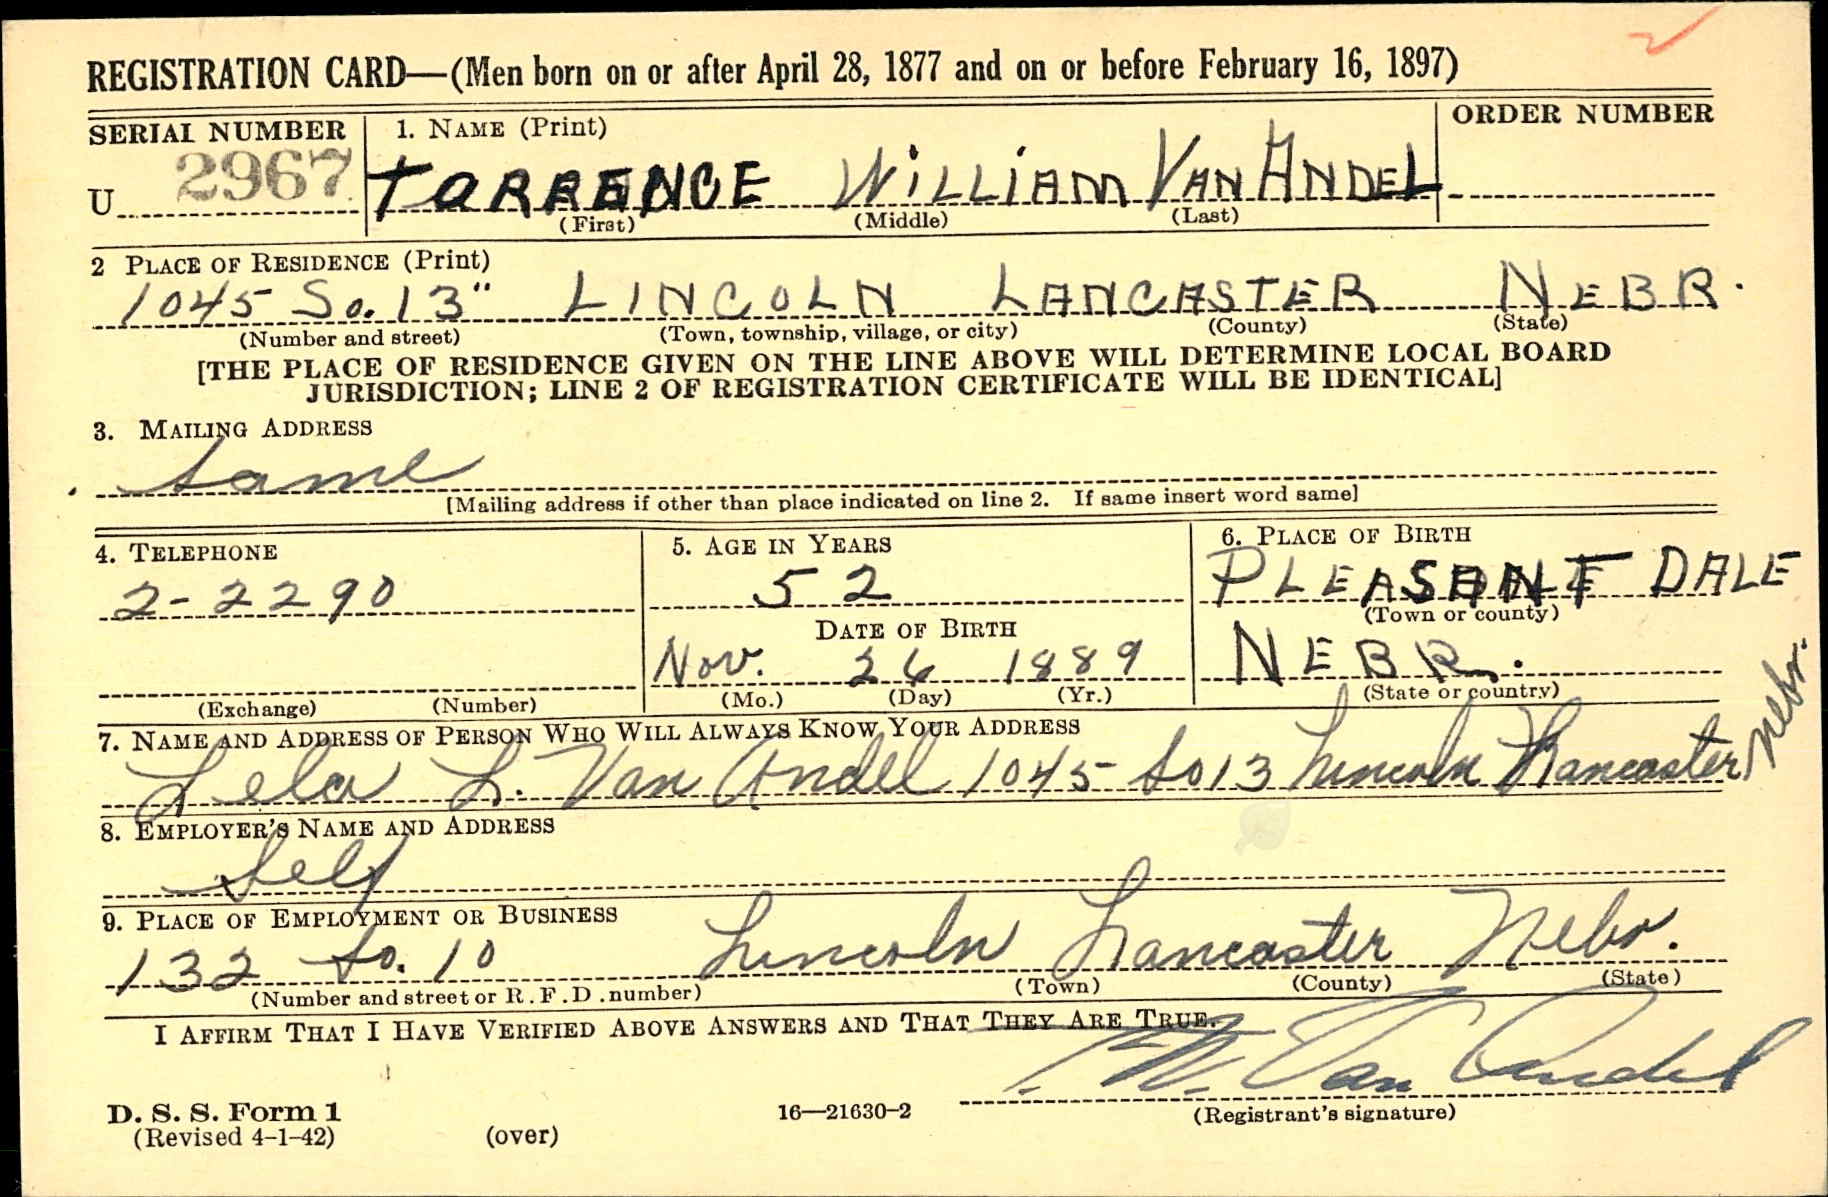 REGISTRATION CARD—(Men born on or after April 28, 1877 and on or before February 16, 1897)
SERIAL NUMBER
1. NAME (Print)
ORDER NUMBER
U 2967
TORRENCE WILLIAM VAN ANDEL
(First) (Middle) (Last)
2 PLACE OF RESIDENCE (Print)
1045 So. 13" LINCOLN LANCASTER NEBR.
(Number and street) (Town, township, village, or city) (County) (State)
[THE PLACE OF RESIDENCE GIVEN ON THE LINE ABOVE WILL DETERMINE LOCAL BOARD
JURISDICTION; LINE 2 OF REGISTRATION CERTIFICATE WILL BE IDENTICAL]
3. MAILING ADDRESS
Same
[Mailing address if other than place indicated on line 2. If same insert word same]
4. TELEPHONE
2-2290
(Exchange) (Number)
5. AGE IN YEARS
52
DATE OF BIRTH
Nov. 26 1889
(Mo.) (Day) (Yr.)
6. PLACE OF BIRTH
PLEASANT DALE
(Town or county)
NEBR.
(State or country)
7. NAME AND ADDRESS OF PERSON WHO WILL ALWAYS KNOW YOUR ADDRESS
Lela L. Van Andel 1045 So 13 Lincoln Lancaster Nebr.
8. EMPLOYER'S NAME AND ADDRESS
Self
9. PLACE OF EMPLOYMENT OR BUSINESS
132 So. 10 Lincoln Lancaster Nebr.
(Number and street or R.F.D. number) (Town) (County) (State)
I AFFIRM THAT I HAVE VERIFIED ABOVE ANSWERS AND THAT THEY ARE TRUE.
T. W. Van Andel
D. S. S. Form 1
(Revised 4-1-42) (over) 16—21630-2 (Registrant's signature)